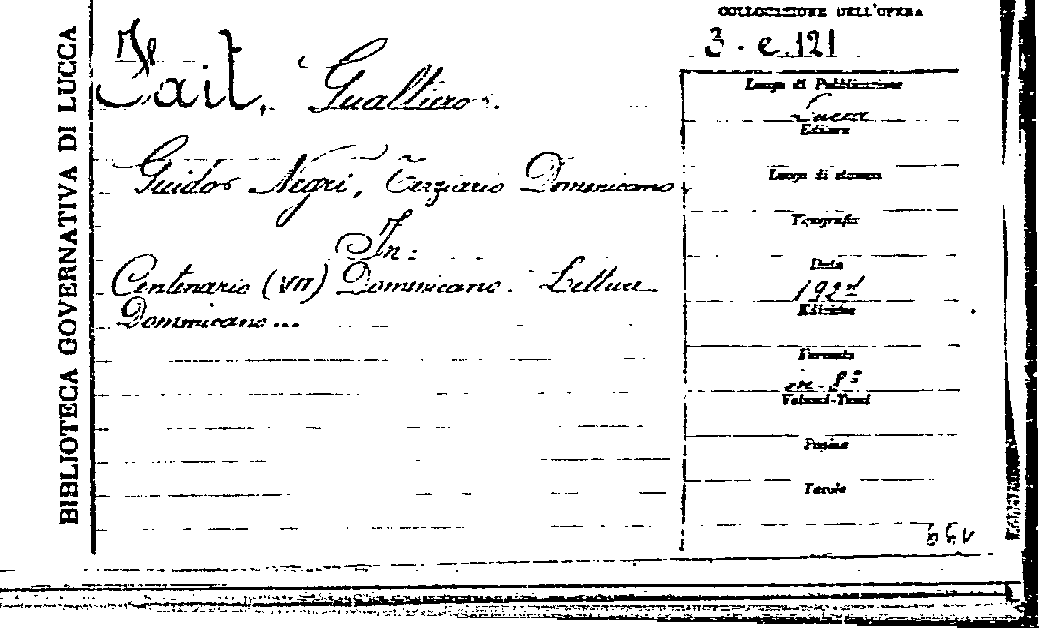 BIBLIOTECA GOVERNATIVA DI LUCCA
COLLOCAZIONE DELL'OPERA
3. e. 121
Tait, Gualtiero.
Guido Negri, Terziario Domenicano.
In:
Centenario (VII) Domenicano. Letture
Domenicane...
Luogo di Pubblicazione
Lucca
Editore
Luogo di stampa
Tipografia
Data
1921
Edizione
Formato
in-8°
Volumi-Tomi
Pagine
Tavole